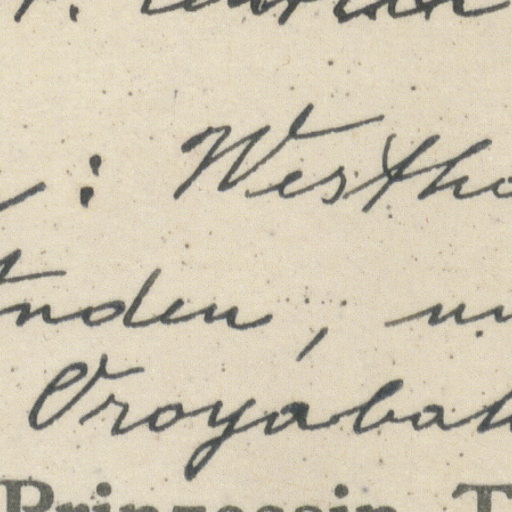 : Westho
nden, un
Oroyabah
Prinzessin T